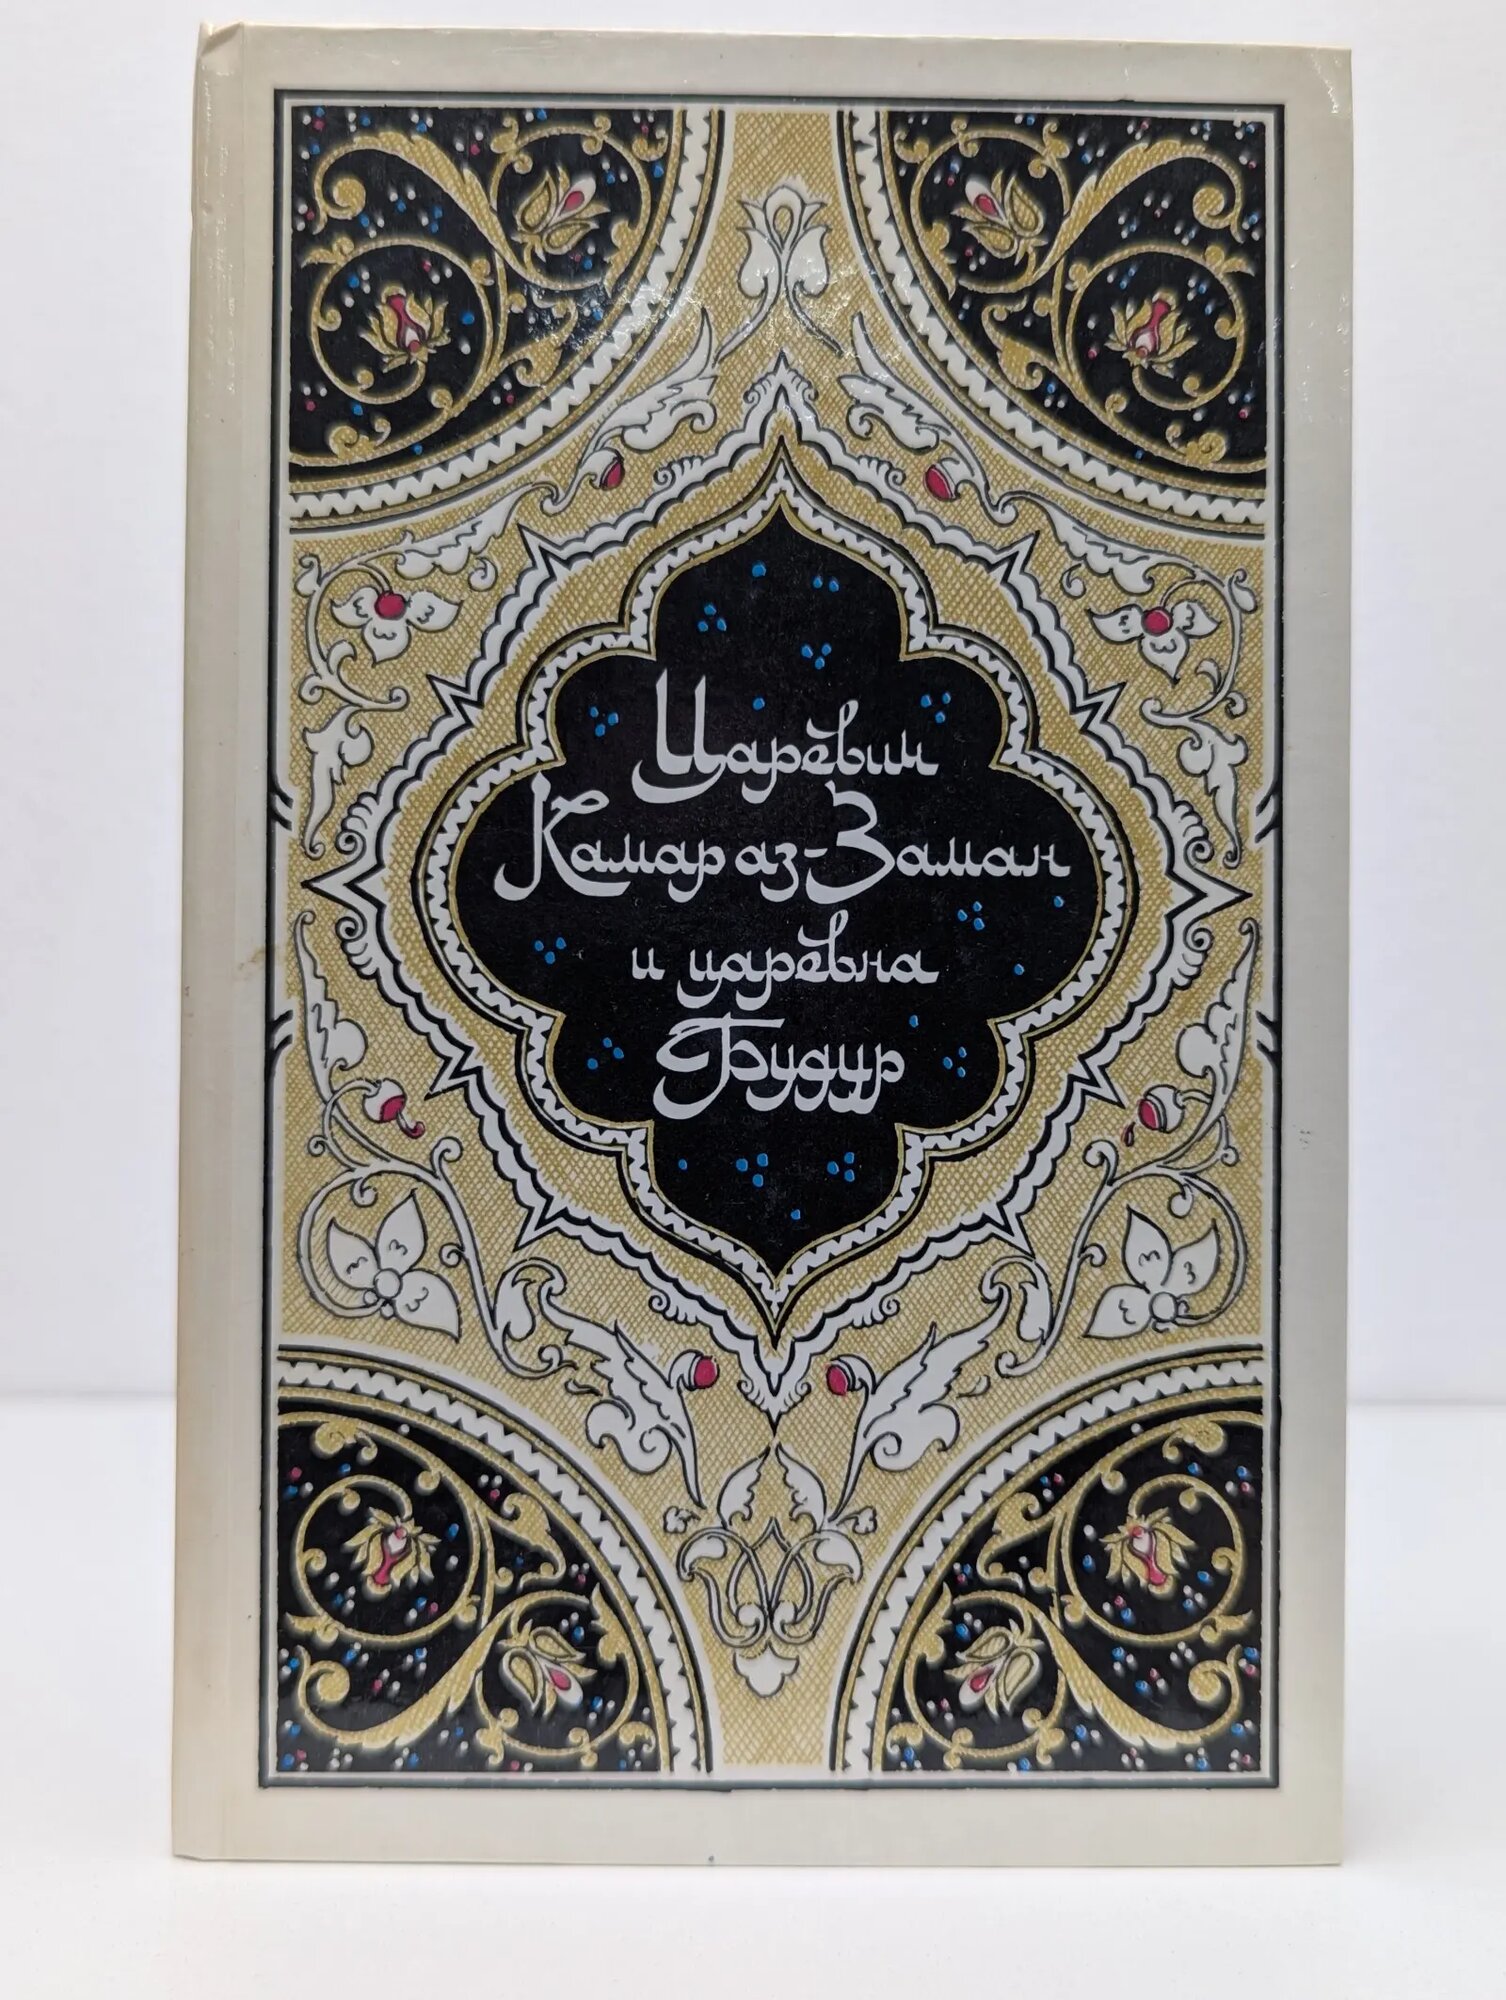 Царевич
Камар аз-Заман
и царевна
Будур